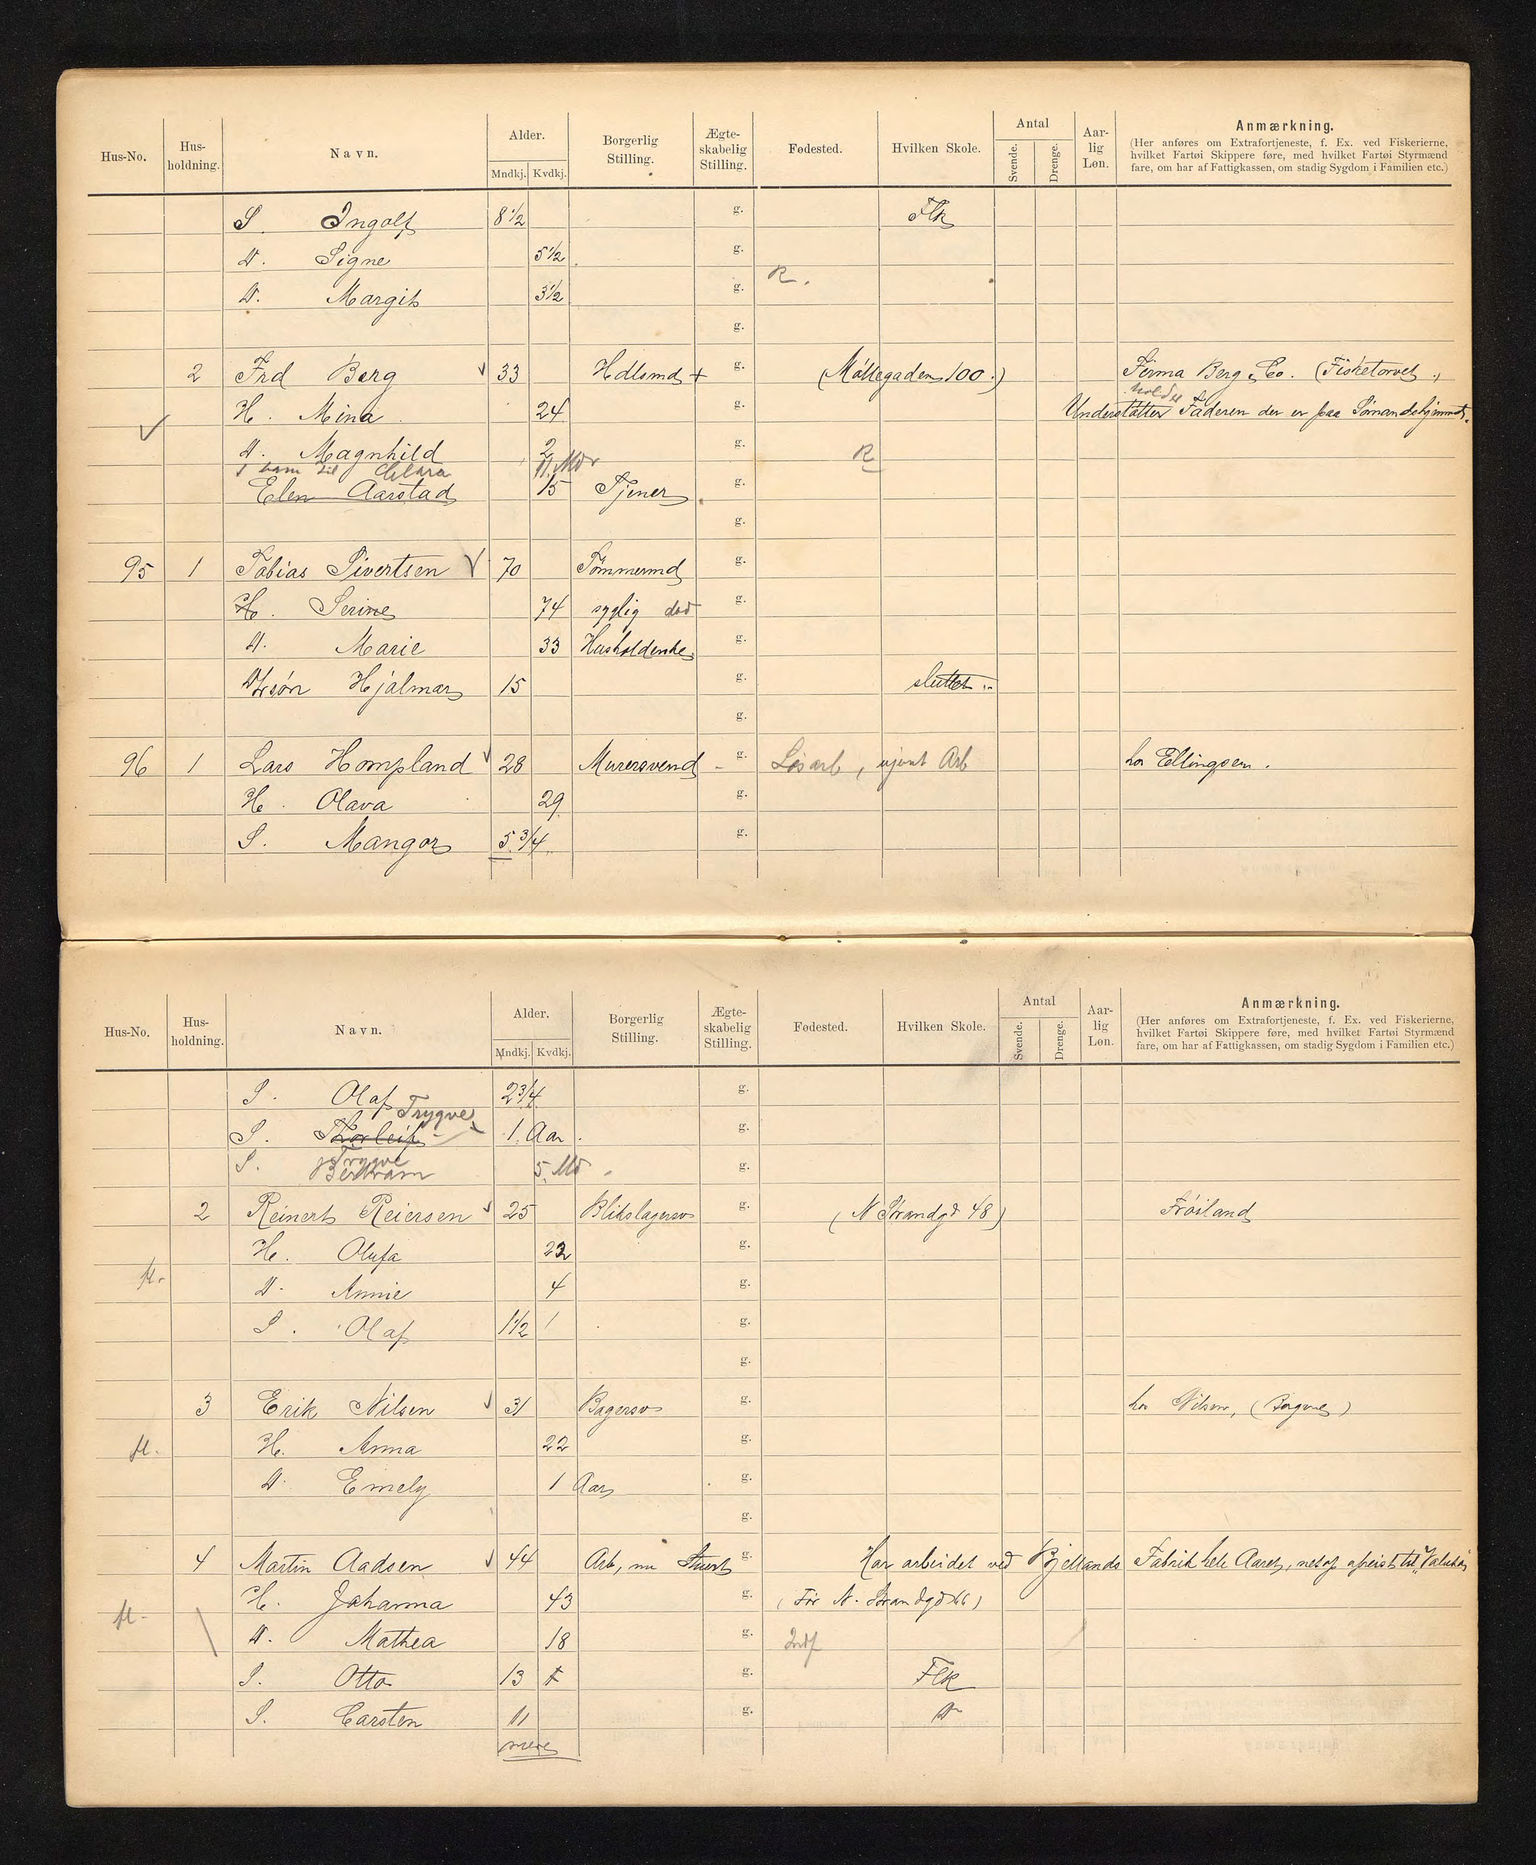 Hus-No. Hus-holdning. Navn. Alder. Mndkj. Kvdkj. Borgerlig Stilling. Ægte-skabelig Stilling. Fødested. Hvilken Skole. Antal Svende. Drenge. Aar-lig Løn. Anmærkning.
(Her anføres om Extrafortjeneste, f. Ex. ved Fiskerierne,
hvilket Fartøi Skippere føre, med hvilket Fartøi Styrmænd
fare, om har af Fattigkassen, om stadig Sygdom i Familien etc.)
S. Ingolf 8 1/2 g. Flk
D. Signe 5 1/2 g.
D. Margit 3 1/2 g. R.
g.
2 Frd Berg 33 Hdlsmd + g. (Møllegaden 100.) Firma Berg & Co. (Fisketorvet.)
holder
H. Mina 24 g. Understøtter Faderen der er paa Sømandshjemmet.
D. Magnhild 2 g. R
Clara 11 Md
Elen Aarstad 15 Tjener g.
g.
95 1 Tobias Sivertsen 70 Tømmermd g.
H. Serine 74 syglig død g.
D. Marie 33 Husholderske g.
Drsøn Hjalmar 15 g. sluttet
g.
96 1 Lars Hompland 28 Murersvend g. Løsarb, ujevnt Arb hos Ellingsen.
H. Olava 29 g.
S. Mangor 5 3/4 g.
Hus-No. Hus-holdning. Navn. Alder. Mndkj. Kvdkj. Borgerlig Stilling. Ægte-skabelig Stilling. Fødested. Hvilken Skole. Antal Svende. Drenge. Aar-lig Løn. Anmærkning.
(Her anføres om Extrafortjeneste, f. Ex. ved Fiskerierne,
hvilket Fartøi Skippere føre, med hvilket Fartøi Styrmænd
fare, om har af Fattigkassen, om stadig Sygdom i Familien etc.)
S. Olaf 2 3/4 g.
Trygve
S. Thorleif 1 Aar. g.
Trygve
S. Bertram 5 Md g.
2 Reinert Reiersen 25 Blikslagersv g. (N Strandgd 48) Frøiland
H. Olufa 22 g.
D. Annie 4 g.
S. Olaf 1 1/2 g.
g.
3 Erik Nilsen 31 Bagersv g. hos Nilsen,
H. Anna 22 g.
D. Emely 1 Aar g.
g.
4 Martin Aadsen 44 Arb, nu Stuert g. Har arbeidet ved Bjellands Fabrik hele Aaret, netop afreist til
H. Johanna 43 g. (Før N. Strandgd 66)
D. Mathea 18 g.
S. Otto 13 g. Flk
S. Carsten 11 g. D
mere